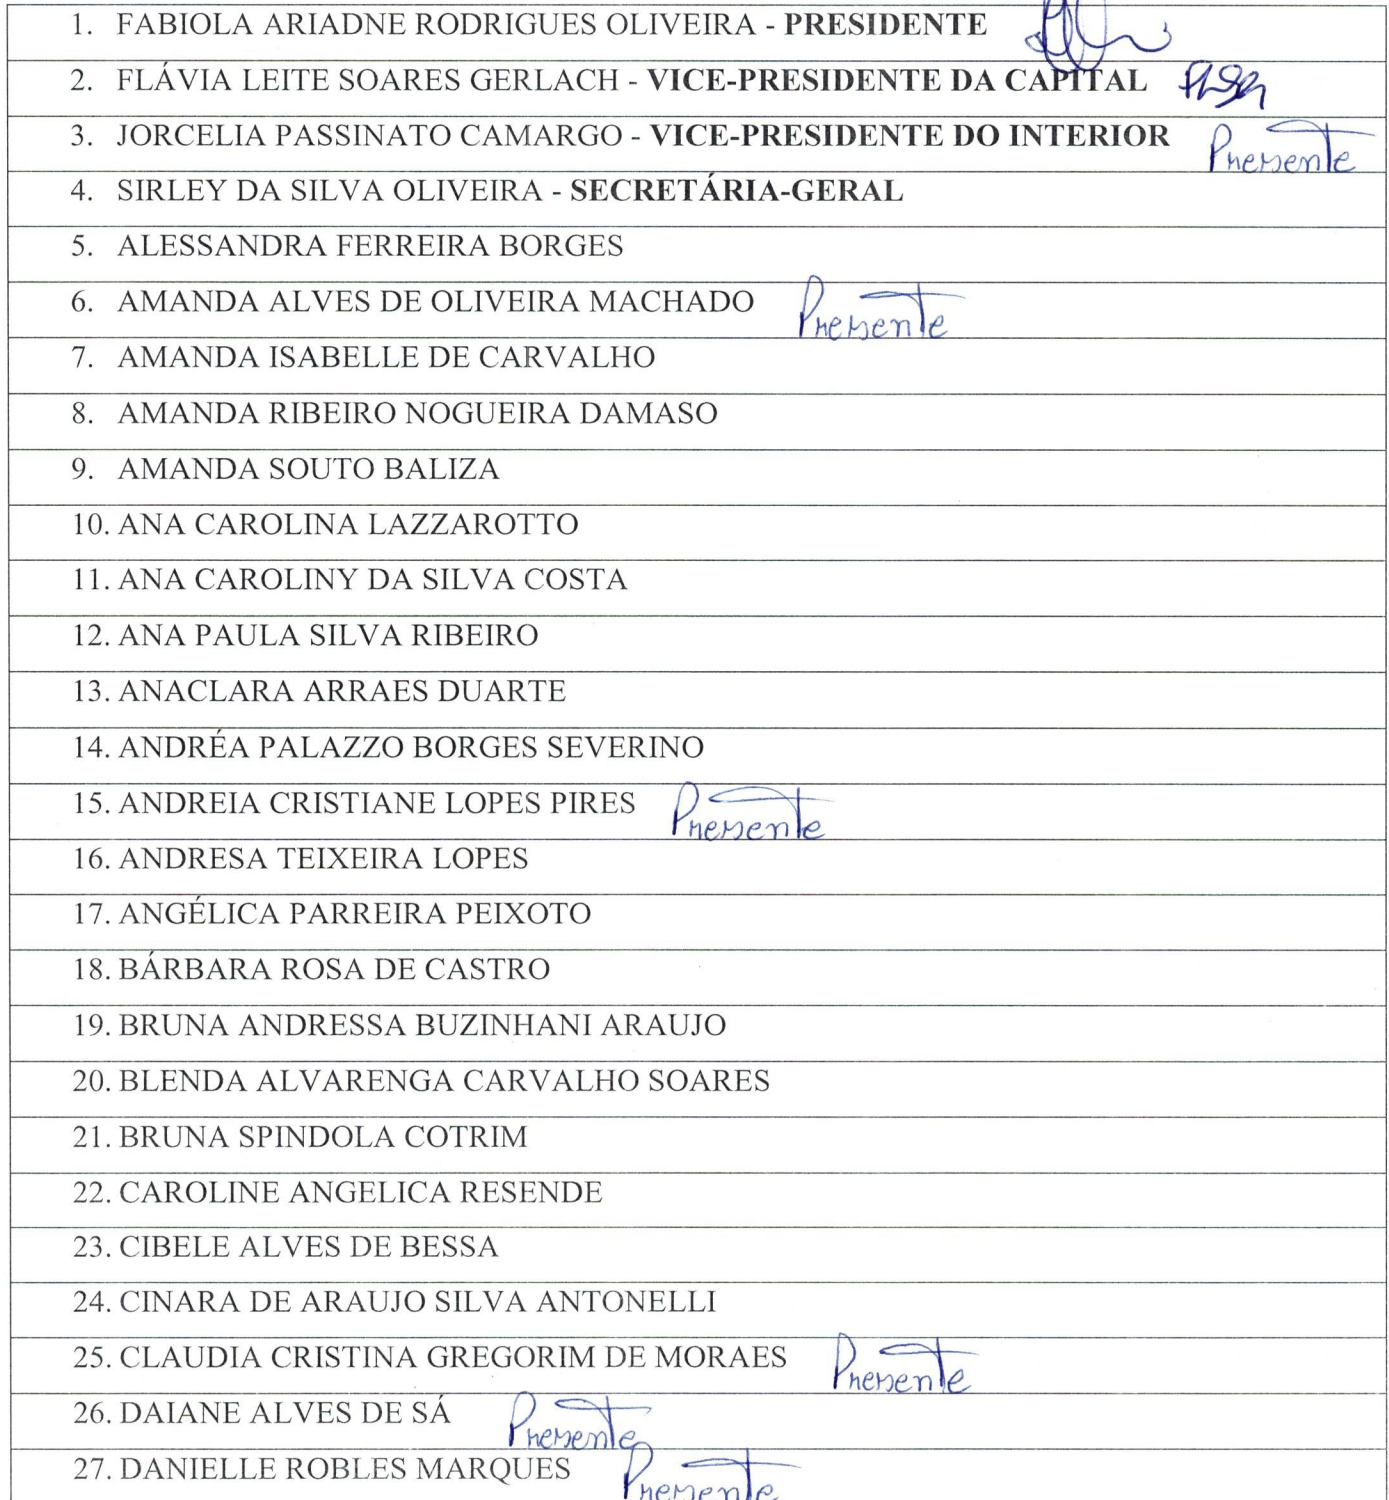 1. FABIOLA ARIADNE RODRIGUES OLIVEIRA - PRESIDENTE
2. FLÁVIA LEITE SOARES GERLACH - VICE-PRESIDENTE DA CAPITAL
3. JORCELIA PASSINATO CAMARGO - VICE-PRESIDENTE DO INTERIOR Presente
4. SIRLEY DA SILVA OLIVEIRA - SECRETÁRIA-GERAL
5. ALESSANDRA FERREIRA BORGES
6. AMANDA ALVES DE OLIVEIRA MACHADO Presente
7. AMANDA ISABELLE DE CARVALHO
8. AMANDA RIBEIRO NOGUEIRA DAMASO
9. AMANDA SOUTO BALIZA
10. ANA CAROLINA LAZZAROTTO
11. ANA CAROLINY DA SILVA COSTA
12. ANA PAULA SILVA RIBEIRO
13. ANACLARA ARRAES DUARTE
14. ANDRÉA PALAZZO BORGES SEVERINO
15. ANDREIA CRISTIANE LOPES PIRES Presente
16. ANDRESA TEIXEIRA LOPES
17. ANGÉLICA PARREIRA PEIXOTO
18. BÁRBARA ROSA DE CASTRO
19. BRUNA ANDRESSA BUZINHANI ARAUJO
20. BLENDA ALVARENGA CARVALHO SOARES
21. BRUNA SPINDOLA COTRIM
22. CAROLINE ANGELICA RESENDE
23. CIBELE ALVES DE BESSA
24. CINARA DE ARAUJO SILVA ANTONELLI
25. CLAUDIA CRISTINA GREGORIM DE MORAES Presente
26. DAIANE ALVES DE SÁ Presente
27. DANIELLE ROBLES MARQUES Presente